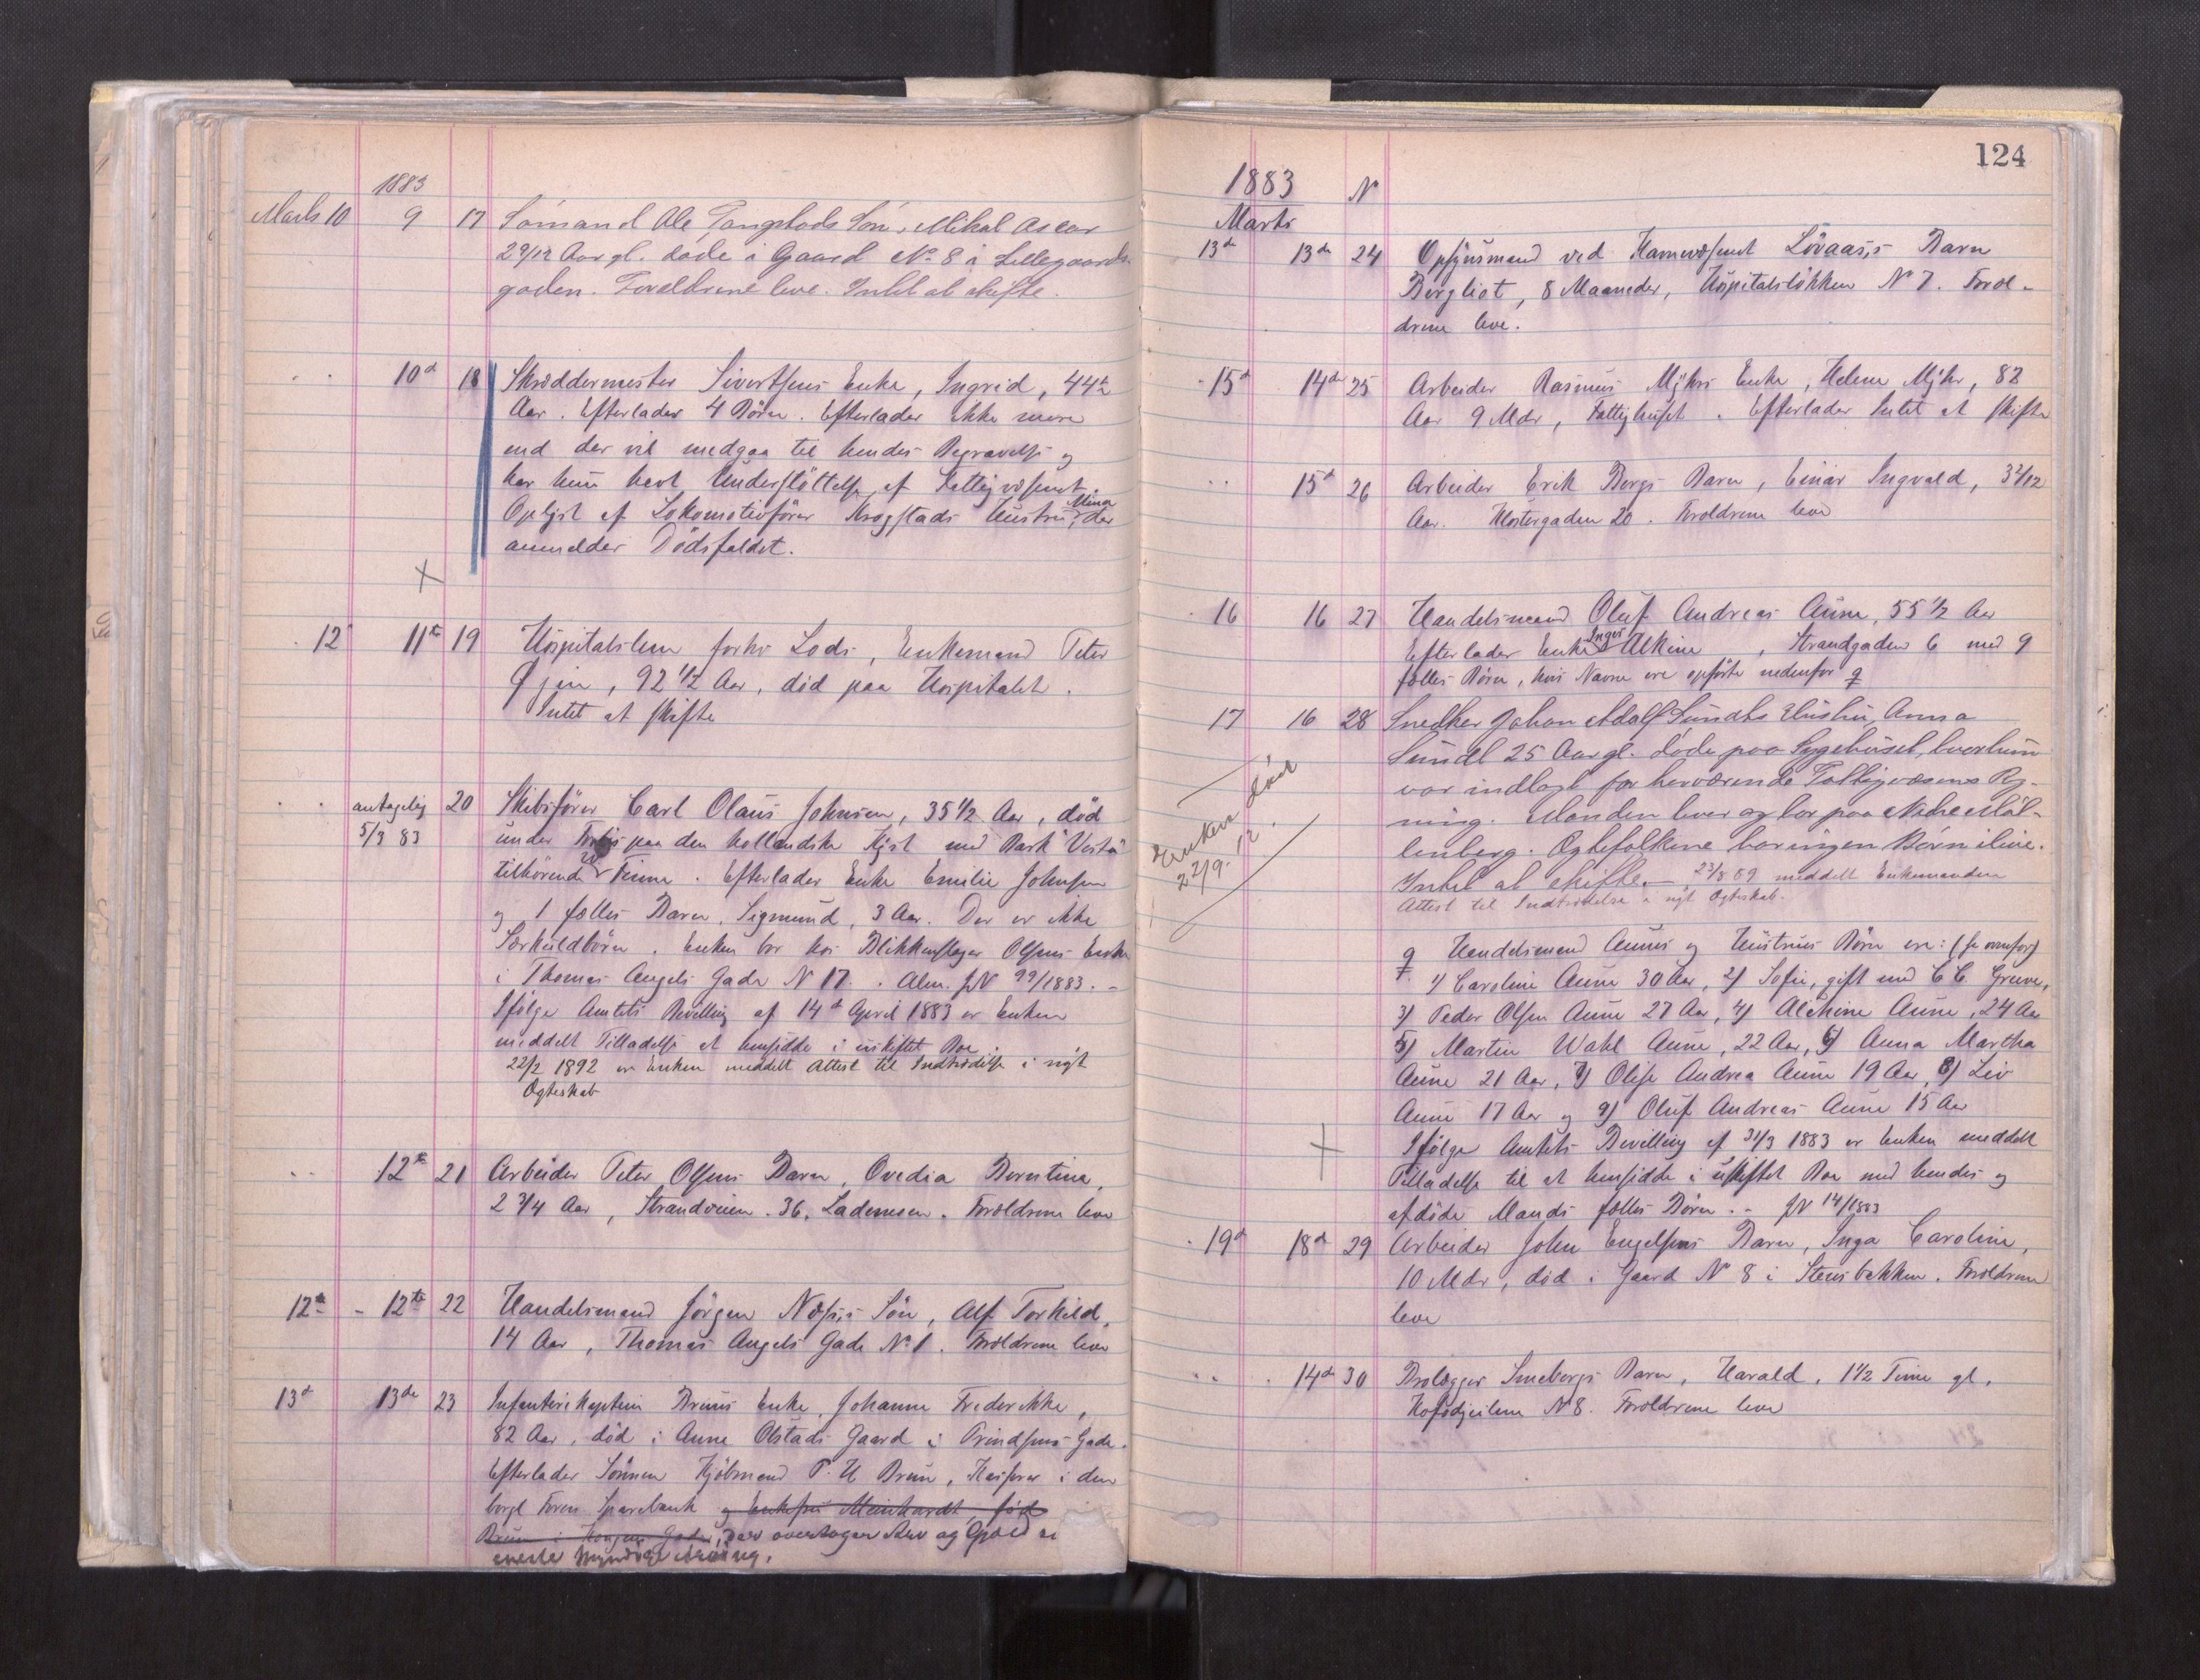 1883
Marts 10 9 17 Sömand Ole Tangstads Sön, Mikal Oscar
2 9/12 Aar gl. döde i Gaard No 8 i Lillegaards-
gaden. Forældrene leve. Intet at skifte.
" " 10d 18 Skræddermester Sivertsens Enke, Ingrid, 44 1/2
Aar. Efterlader 4 Börn. Efterlader ikke mere
end der vil medgaa til hendes Begravelse og
har hun havt Understöttelse af Fattigvæsenet.
Oplyst af Lokomotivförer Krogstads Hustru, Mina der
anmelder Dödsfaldet.
12 11te 19 Hospitalslem forhv Lods, Enkemand Peter
Øjen, 92 1/2 Aar, död paa Hospitalet.
Intet at skifte
" " antagelig 20 Skibsförer Carl Olaus Johnsen, 35 1/2 Aar, död
5/3 83 under Forlis paa den hollandske Kyst med Bark "Vesta"
tilhörende Finne. Efterlader Enke Emilie Johnsen
og 1 fælles Barn, Sigmund, 3 Aar. Der er ikke
Særkuldbörn. Enken bor hos Blikkenslager Olsens Enke
i Thomas Angels Gade N 17. Alm. JN 99/1883. -
Ifölge Amtets Bevilling af 14de April 1883 er Enken
meddelt Tilladelse at hensidde i uskiftet Boe.
22/2 1892 er Enken meddelt Attest til Indtrædelse i nyt
Ægteskab
" " 12te 21 Arbeider Peter Olsens Barn, Ovedia Berntine,
2 3/4 Aar, Strandveien 36, Lademoen. Forældrene leve
12te - 12te 22 Handelsmand Jörgen Næss's Sön, Alf Torkild,
14 Aar, Thomas Angels Gade No 1. Forældrene leve
13d 13de 23 Infanterikaptein Bruns Enke, Johanne Frederikke,
82 Aar, död i Anne Olstads Gaard i Arildsens Gade.
Efterlader Sönnen Kjöbmand P. H Brun, Kasserer i den
borgl Foren. Sparebank og Enkefru Meinhardt, föd
Brun i Kongens Gade, der overtager Arv og Gjæld som
eneste myndige Arving.
124
1883 N
Marts
13d 13de 24 Opsynsmand ved Havnevæsenet Lövaas's Barn
Bergliot, 8 Maaneder, Hospitalslökken N 7. Foræl-
drene leve.
15d 14de 25 Arbeider Rasmus Myhrs Enke, Helene Myhr, 82
Aar 9 Mdr, Fattighuset. Efterlader Intet at skifte
" " 15d 26 Arbeider Erik Bergs Barn, Einar Ingvald, 3 2/12
Aar. Klostergaden 20. Forældrene leve
16 16 27 Handelsmand Oluf Andreas Aune, 55 1/2 Aar
Efterlader Enke Inger Alkine, Strandgaden 6 med 9
fælles Börn, hvis Navne ere opförte nedenfor 9
17 16 28 Snedker Johan Adolf Sundts Hustru Anna
Sundt 25 Aar gl. döde paa Sygehuset, hvor hun
var indlagt for herværende Fattigvæsens Reg-
ning. Manden lever og bor paa Nedre Möl-
lenberg. Ægtefolkene har ingen Börn ilive.
Intet at skifte. - 23/8 89 meddelt Enkemanden
Attest til Indtrædelse i nyt Ægteskab.
Enken död
22/9. 12.
9 Handelsmand Aunes og Hustrues Börn ere: (se ovenfor)
1) Caroline Aune 30 Aar, 2) Sofie, gift med C C Greve,
3) Peder Olsen Aune 27 Aar, 4) Alekine Aune, 24 Aar
5) Martin Wahl Aune, 22 Aar, 6) Anna Martha
Aune 21 Aar, 7) Olise Andrea Aune 19 Aar, 8) Liv
Aune 17 Aar og 9) Oluf Andreas Aune 15 Aar
Ifölge Amtets Bevilling af 31/3 1883 er Enken meddelt
Tilladelse til at hensidde i uskiftet Boe med hendes og
afdöde Mands fælles Börn. - JN 14/1883
19d 18d 29 Arbeider John Engelsens Barn, Inga Caroline,
10 Mdr, död i Gaard N 8 i Stensbakken. Forældrene
leve
" " 14de 30 Brolægger Snebergs Barn, Harald, 1 1/2 Time gl.
N 8. Forældrene leve